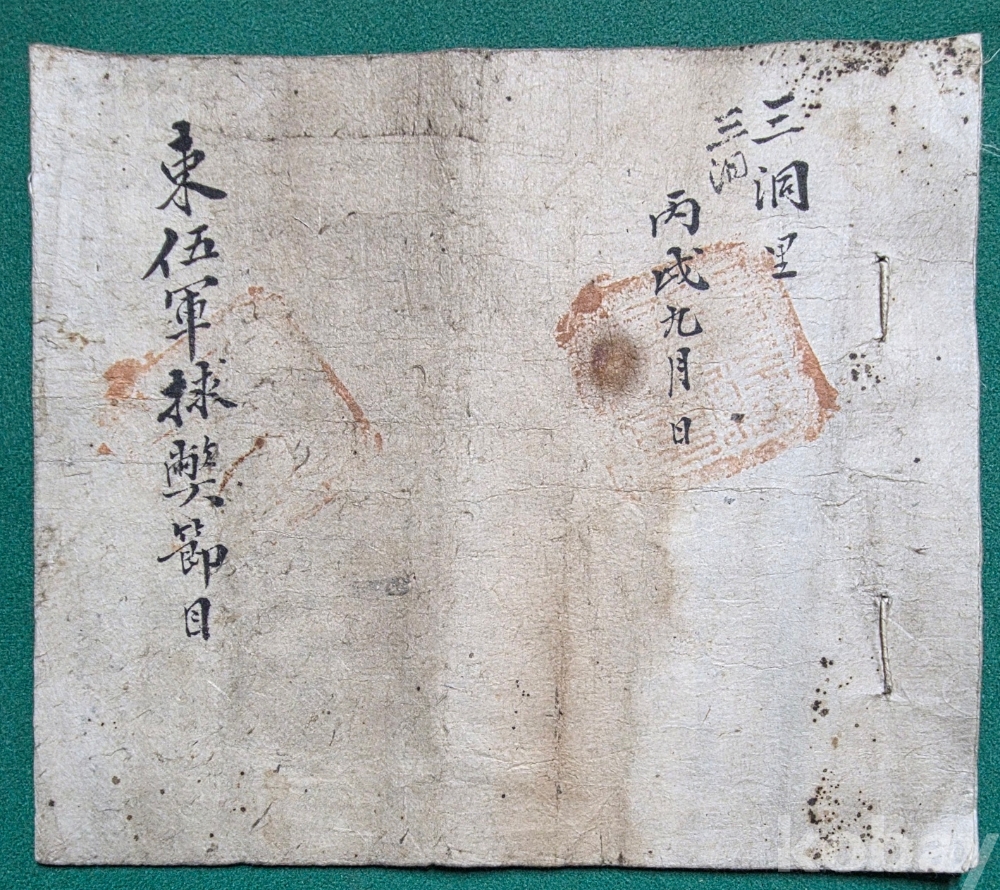 三洞里
三洞
丙戌九月日
束伍軍捄弊節目
kobay